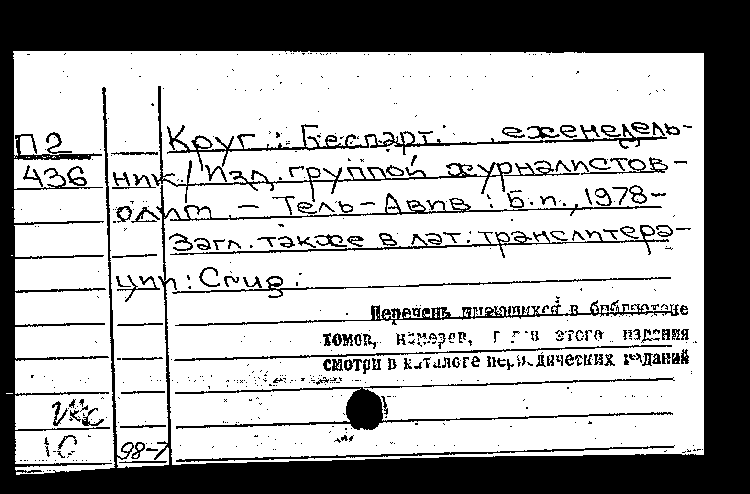 П2
436
Круг : Беспарт. еженедель-
ник / Изд. группой журналистов-
олим. – Тель-Авив : Б.п., 1978-
Загл. также в лат. транслитера-
ции: Crug.
Перечень имеющихся в библиотеке
томов, номеров, этого издания
смотри в каталоге периодических изданий
10
98-7